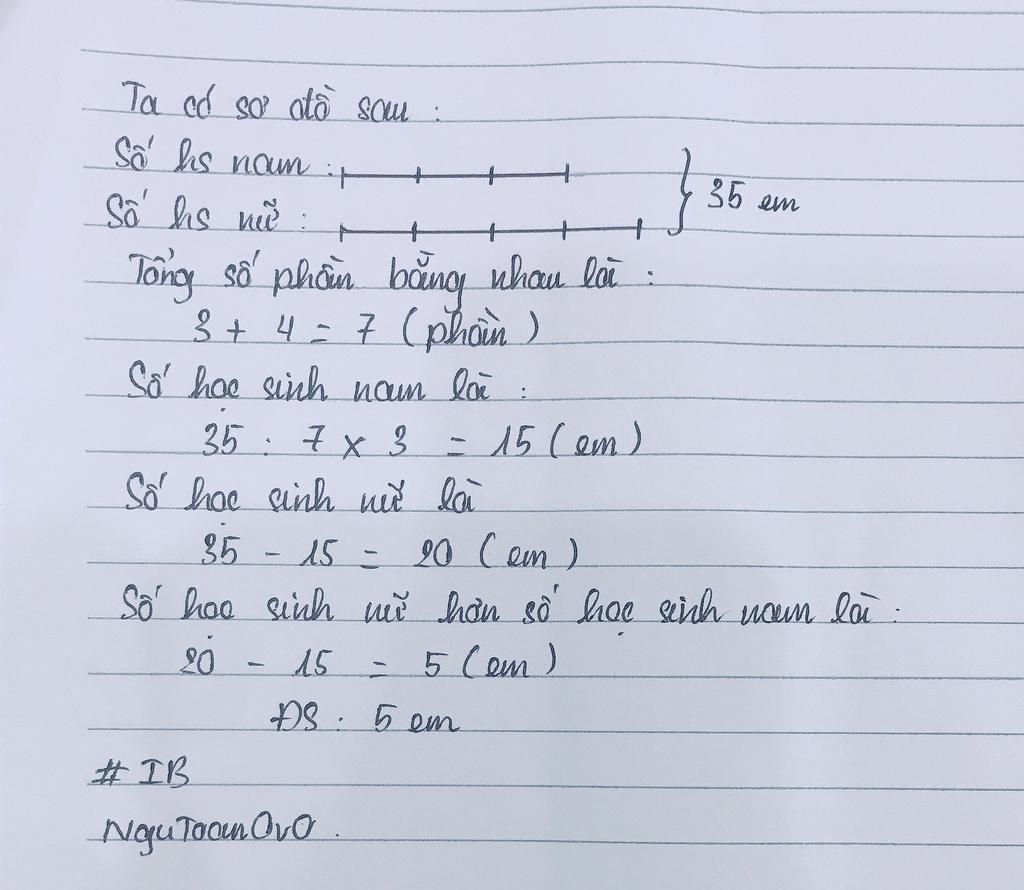 Ta có sơ đồ sau :
Số hs nam :
Số hs nữ :
35 em
Tổng số phần bằng nhau là :
3 + 4 = 7 ( phần )
Số học sinh nam là :
35 : 7 x 3 = 15 ( em )
Số học sinh nữ là
35 - 15 = 20 ( em )
Số học sinh nữ hơn số học sinh nam là :
20 - 15 = 5 ( em )
ĐS : 5 em
# IB
NguToanOvO .